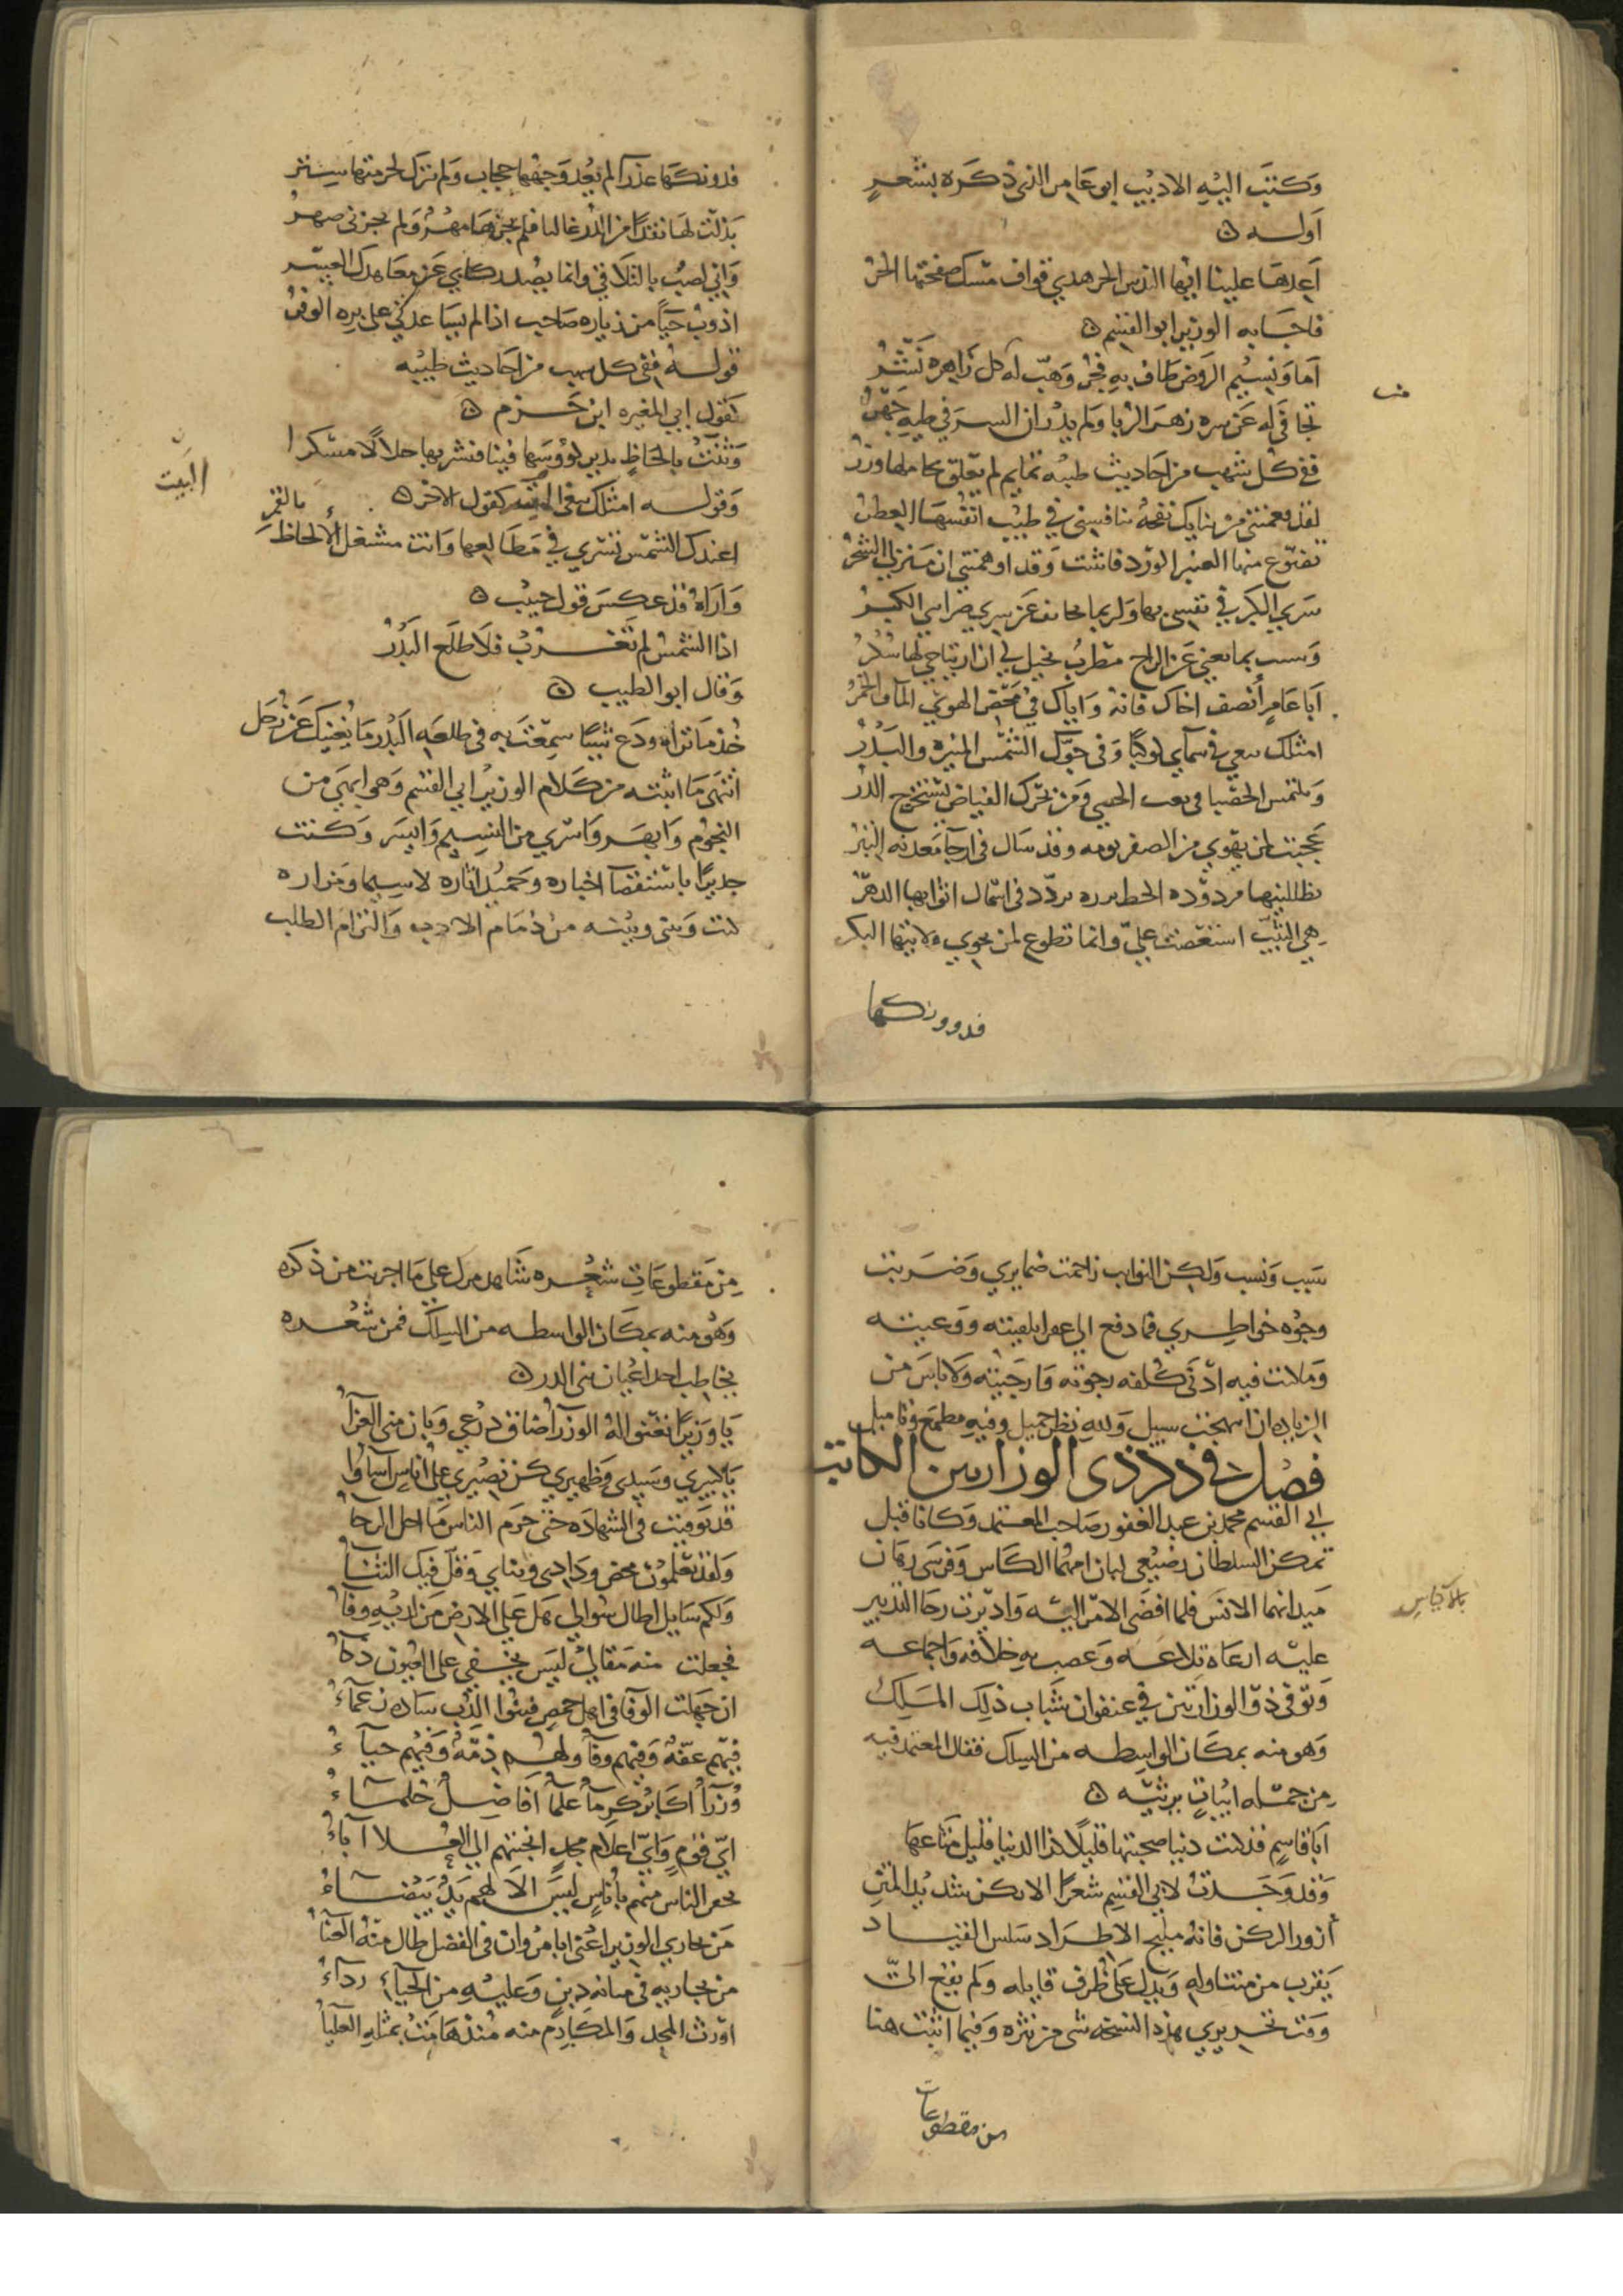 وكتب اليه الاديب ابو عامر الذي ذكره بشعر
اوله ه
اعدها علينا ايها الندس الحر هدي قواف مسك صفحتها الحبر
فاجابه الوزير ابو القسم ه
اما ونسيم الروض طاف به فجر وهب له كل زاهرة نشر
تجافى له عن سره زهر الربا ولم يدر ان السر في طيه جهر
ففي كل سهب من احاديث طيبه تمايم لم تعلق بحاملها وزر
لقد فغمتني من ثنايك نفحة ينافسني في طيب انفسها العطر
تضوع منها العنبر الورد فانثنت وقد اوهمتني ان منزلي الشحر
سرى الكبر في نفسي بها ولربما تجانف عن مسرى ضرايبي الكبر
وشيب بها معنى عن الراح مطرب يخيل لي ان ارتياحي لها سكر
ابا عامر انصف اخاك فانه واياك في محض الهوى الما والخمر
امثلك يبغي في سماي كوكبا وفي جوك الشمس المنيرة والبدر
ويلتمس الحصبا في ثعب الحصى ومن بحرك الفياض يستخرج الدر
عجبت لمن يهوى من الصفر تومة وقد سال في ارجا معدنه التبر
هي الثيب استعصت علي وانما تطوع لمن يحوي ولايتها البكر
فدونكها
فدونكها عذرا لم يعد وجهها حجاب ولم تترك لحرمتها ستر
بذلت لها نقدا من الدر غاليا فلم يجزها مهر ولم يجزني صهر
واني لصب بالتلاقي وانما يصد ركابي عن معاهدك العسر
اذوب حيا من زيارة صاحب اذا لم يساعدني على بره الوفر
قوله ففي كل سهب من احاديث طيبه
كقول ابي المغيره ابن حزم ه
وثنت بالحاظ يدير كؤوسها فينا فنشربها حلالا مسكرا
وقوله امثلك يبغي البيت كقول الاخر ه
اعندك الشمس تسري في مطالعها وانت مشتغل الالحاظ بالقمر
واراه قد عكس قول حبيب ه
اذا الشمس لم تغرب فلا طلع البدر
وقال ابو الطيب ه
خذ ما تراه ودع شيئا سمعت به في طلعة البدر ما يغنيك عن زحل
انتهى ما اثبته من كلام الوزير ابي القسم وهي ابهى من
النجوم وابهر واسرى من النسيم وايسر وكنت
جديرا باستقصا اخباره وحميد اثاره لا سيما ومزاره
كنت وبيني وبينه من ذمام الادب والتزام الطلب
سبب ونسب ولكن النوايب زاحمت ضمايري وضربت
وجوه خواطري فما دفع الي عفوا بلغيته ووعيته
وما كنت فيه ادنى كلفه رجوته وارجيته ولا باس من
الزياده ان انهجت سبيل ولله نظر جميل وفيه مطمع وتاميل
فصل في ذكر ذي الوزارتين الكاتب
ابي القسم محمد بن عبد الغفور صاحب المعتمد وكانا قبل
تمكن السلطان رضيعي لبان امهما الكاس وفرسي رهان
ميدانهما الانس فلما افضى الامر اليه واديرت رحا التدبير
عليه ارعاه تلاعه وعصب به خلافه واجماعه
وتوفي ذو الوزارتين في عنفوان شباب ذلك الملك
وهو منه بمكان الواسطه من السلك فقال المعتمد فيه
من جمله ابيات يرثيه ه
ابا قاسم قد كنت دنيا صحبتها قليلا كذا الدنيا قليل متاعها
وقد وجدت لابي القسم شعرا الا يكن شديد المتن
ازور الركن فانه مليح الاطراد سلس القياد
يقرب من متناوله ويدل على ظرف قايله ولم يقع الي
وقت تحريري هذه النسخه شي من نثره وفيما اثبت هنا
من مقطوعات
من مقطوعات شعره شاهد عدل على ما اجريت من ذكره
وهو منه بمكان الواسطه من السلك فمن شعره
يخاطب احد اعيان بني الدر ه
يا وزيرا تعنو له الوزرا ضاق ذرعي وبان مني العزا
يا كبيري وسيدي وظهيري كن نصيري على اناس اساوا
قد توفيت في الشهاده حتى حرم الناس ما احل الرجا
ولقد تعلمون محض ودادي وثنايي وقل فيك الثنا
ولكم سايل اطال سوالي هل على الارض من لديه وفا
فجعلت منه مقالي ليس يخفى على العيون ذكا
ان جهلت الوفا في اهل حمص فبنوا الدب ساده زعماء
فيهم عفه وفيهم وفا ولهم ذمه وفيهم حياء
وزرا اكابر كرما علما افاضل حلماء
اي قوم واي اعلام مجد انجبتهم الى العلا اباء
من يجاري الوزير اعني ابا مروان في الفضل طال منه العنا
من يجاريه في متانه دين وعليه من الحياء رداء
اورث المجد والمكارم منه منذ هامت بمثله العليا
البيت